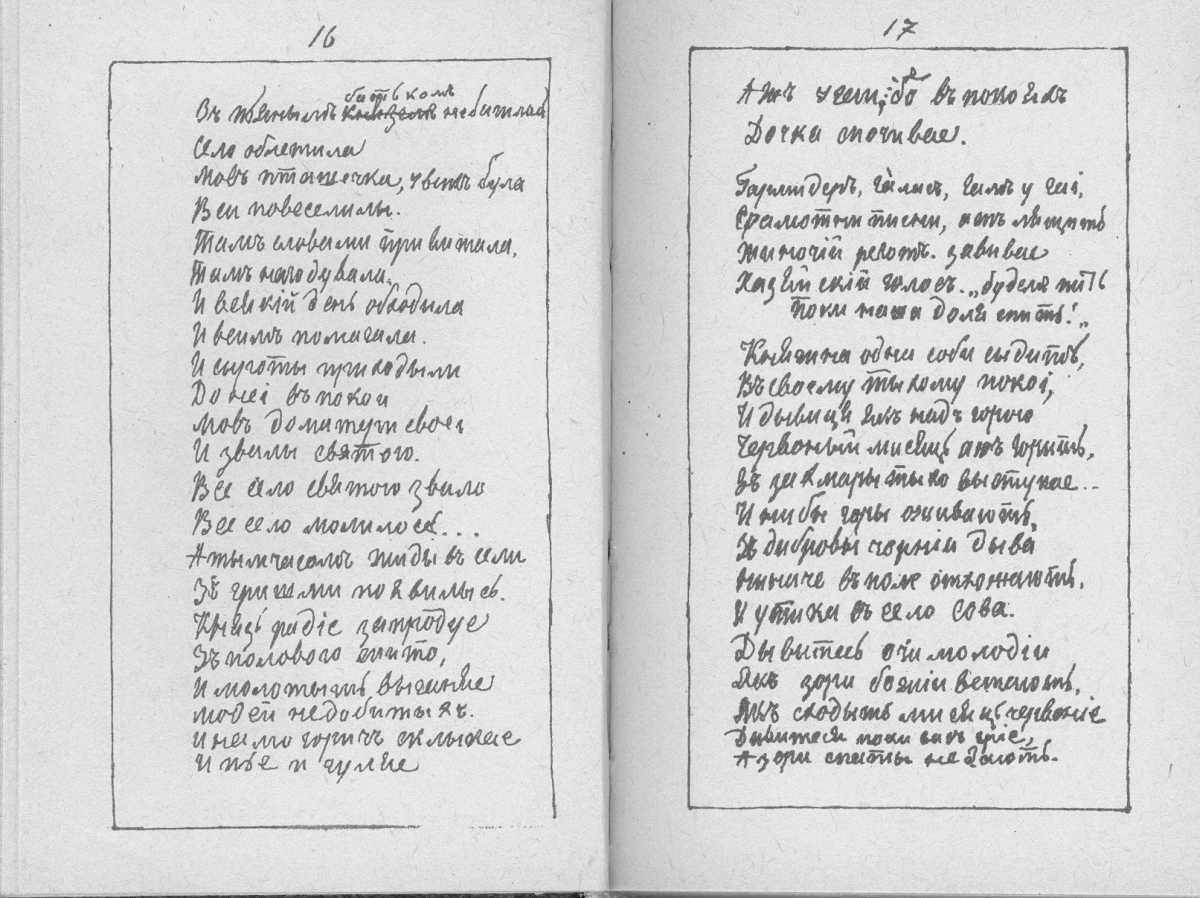 16
батькомъ
Зъ пьянымъ княземъ небитлась
Село облетила
Мовъ пташечка, у всихъ була
Всих повеселила.
Тамъ словами привитала,
Тамъ нагодувала,
И всякій день обходила
И всимъ помагала.
И сыроты приходыли
До неі въ покои
Мовъ до матери своеі
И звалы святою.
Все село святою звало
Все село молилось...
А тымчасомъ жиды въ сели
Зъ гришми появились.
Князь радіе запродуе
Зъ полового жыто,
И молотыть выганяе
Людей недобитыхъ.
И на могоричъ склыкае
И пье и гуляе
17
Ажъ у гаи, бо въ покояхъ
Дочка спочивае.
Гармидеръ, галасъ, гамъ у гаі,
Срамотни писни, ажъ лящить
Жиночій реготъ. завивае
Хазяйскій голосъ. „будемъ пить
Поки наша доля спить!„
Княжна одна соби сыдить,
Въ своему тыхому покоі,
И дывиця якъ надъ горою
Червоный мисяць ажъ горить,
Зъ за хмары тыхо выступае..
И ниби горы оживають,
Зъ дибровы чорніи дыва
ниначе въ поле отхожають.
И утика въ село сова.
Дывитесь очи молодіи
Якъ зори божіи встають,
Якъ сходыть мисяць червоніе
Дивитеся поки васъ гріе,
А зори спаты не дають.